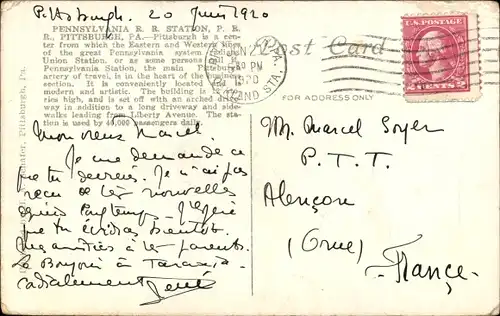 Pittsburgh. 20 Juin 1920
PENNSYLVANIA R. R. STATION, P. R.
R., PITTSBURGH, PA.—Pittsburgh is a cen-
ter from which the Eastern and Western lines
of the great Pennsylvania system radiate.
Union Station, or as some persons call it
Pennsylvania Station, the main Pittsburgh
artery of travel, is in the heart of the business
section. It is conveniently located and is
modern and artistic. The building is
stories high, and is set off with an arched drive-
way in addition to a long driveway and side-
walks leading from Liberty Avenue. The sta-
tion is used by 40,000 passengers daily.
Mon vieux Marcel.
Je me demande ce
que tu deviens. Je n'ai pas
reçu de tes nouvelles
depuis longtemps. J'espère
que tu écriras bientôt.
Mes amitiés à tes parents.
Le Bonjour à
cordialement René
Pittsburgh, Pa.
Post Card
FOR ADDRESS ONLY
PA.
1920
GRAND STA.
U.S. POSTAGE
2 CENTS 2
M. Marcel Soyer
P. T. T.
Alençon
(Orne)
- France -